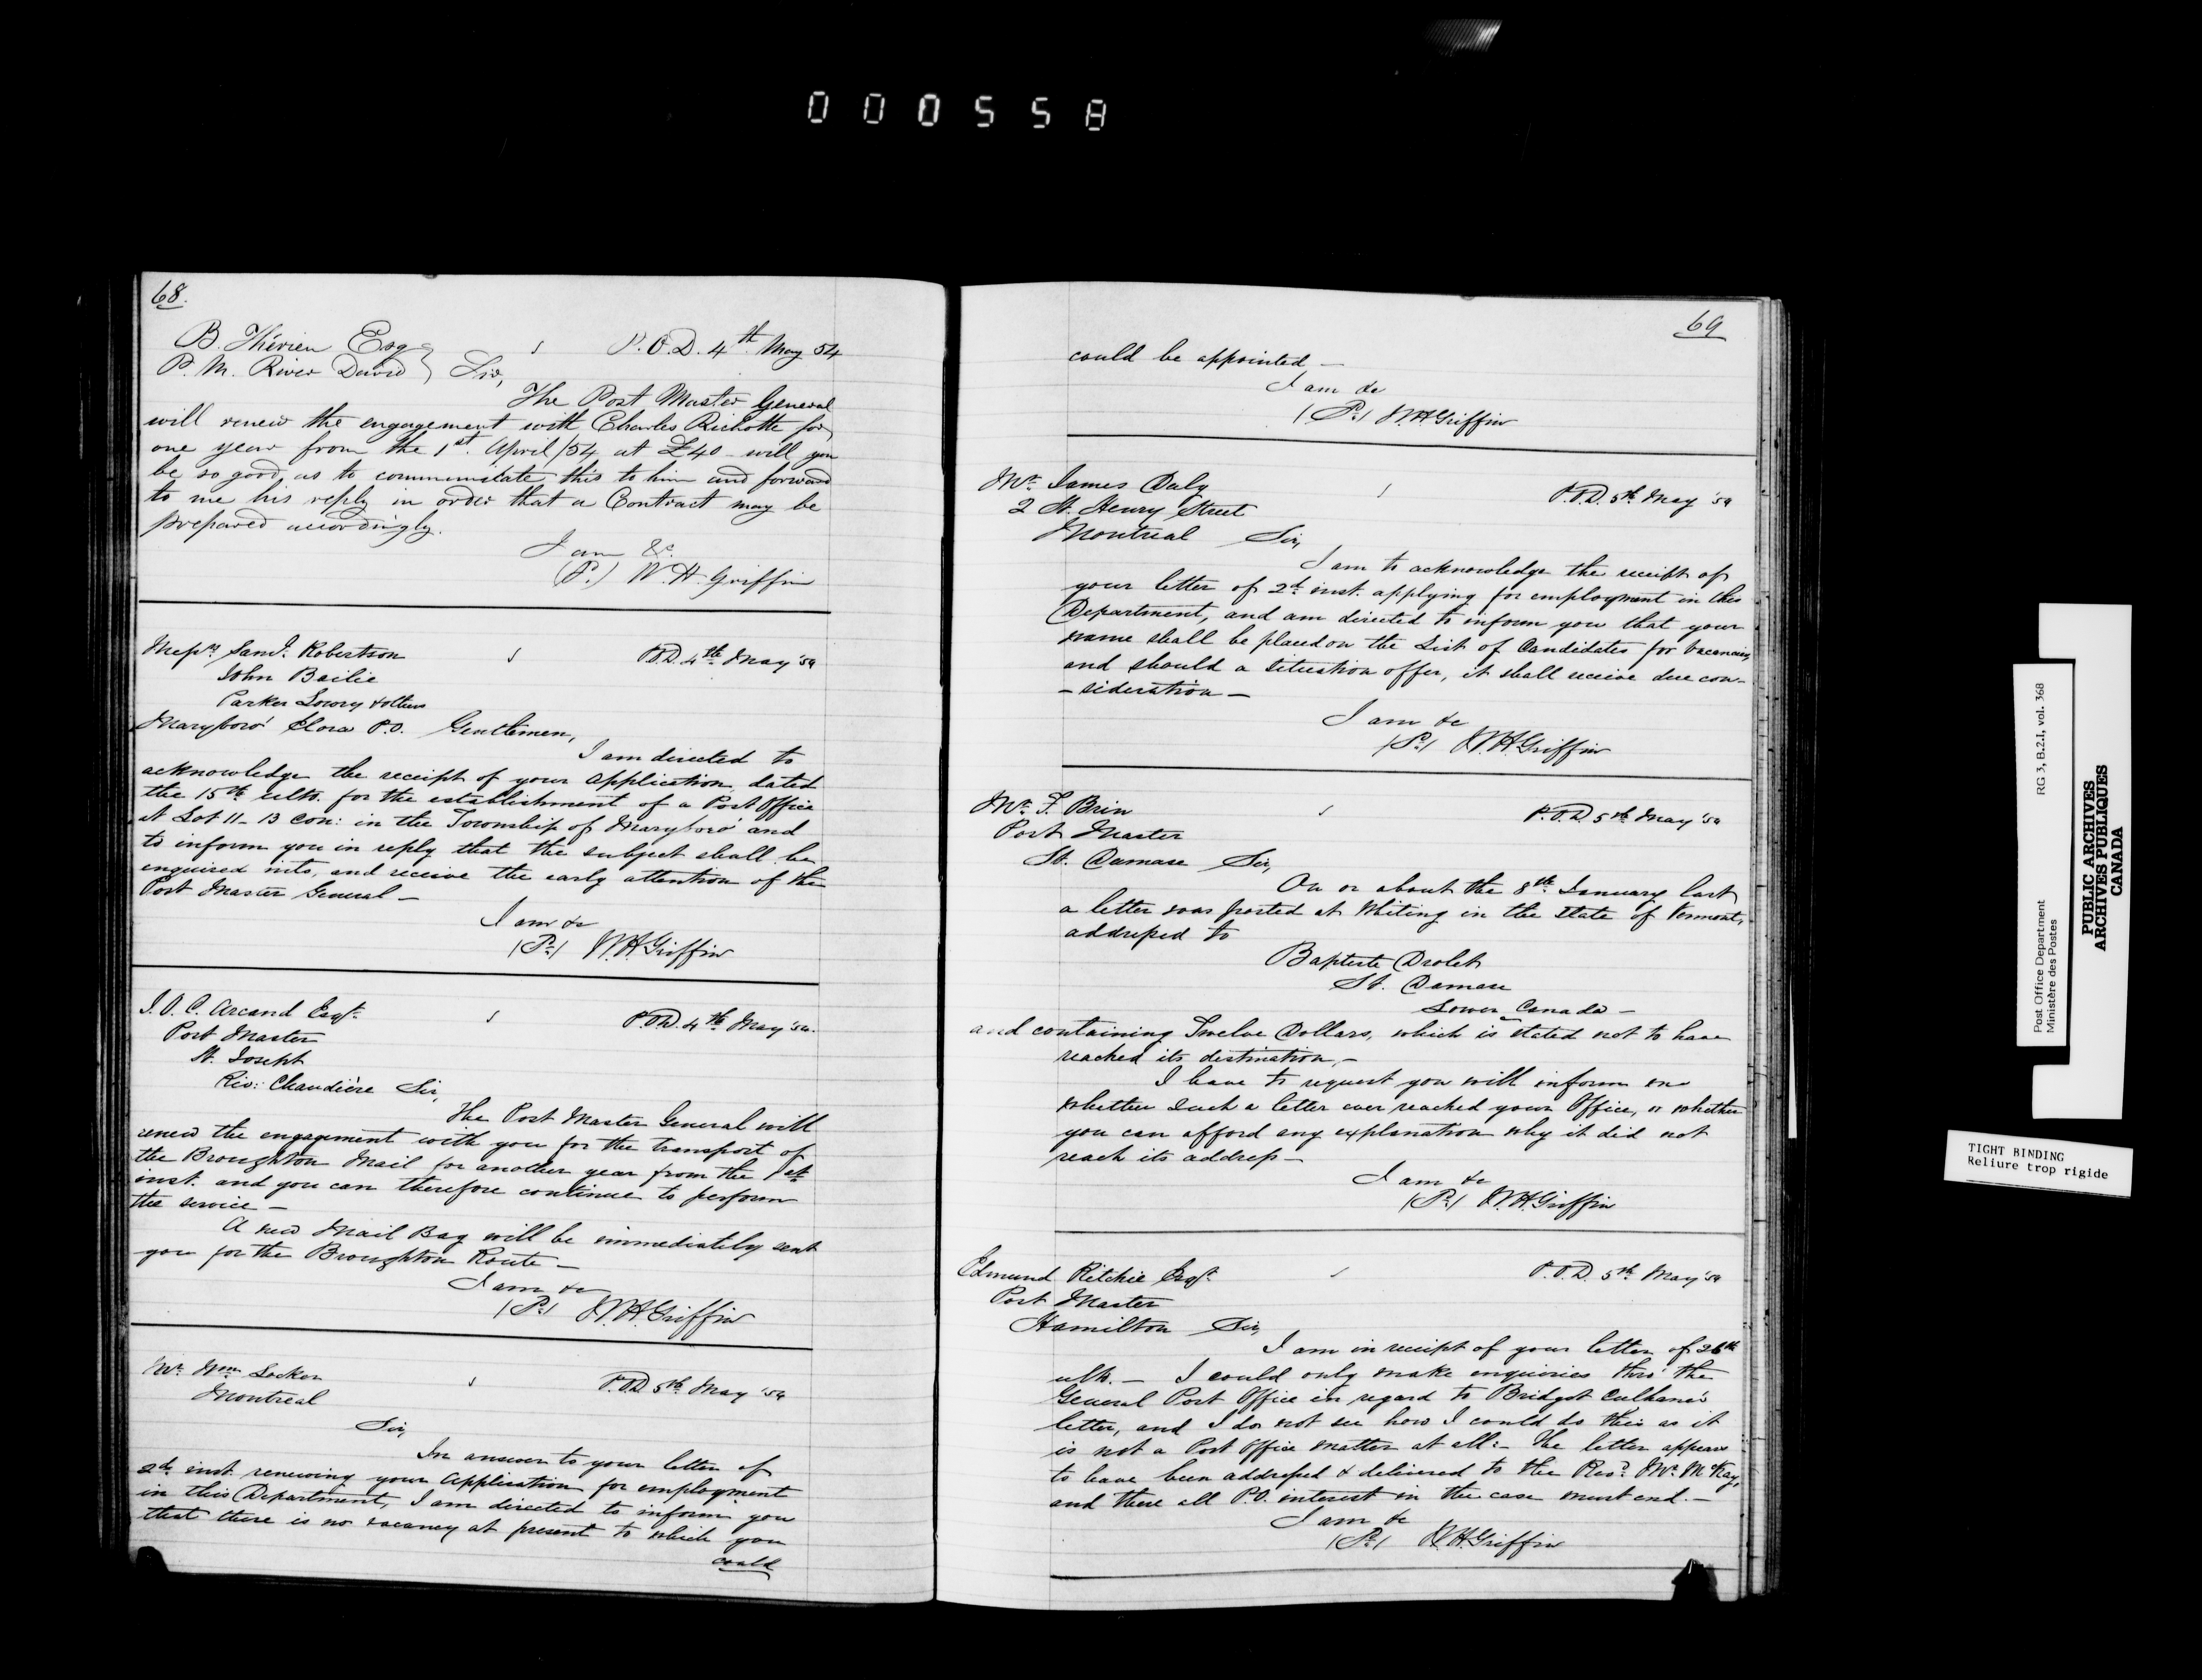 000558
68.
B. Thérien Esq P.O.D. 4th May 54
P. M. River David } Sir,
The Post Master General
will renew the engagement with Charles Richotte for
one year from the 1st. April/54 at £40 - will you
be so good as to communicate this to him and forward
to me his reply in order that a Contract may be
prepared accordingly.
I am &c.
(P.) W. H. Griffin
Messrs Saml. Robertson P.O.D. 4th May '54
John Bailie
Parker Lowry & others
Maryboro' Elora P.O. Gentlemen,
I am directed to
acknowledge the receipt of your application dated
the 15th ulto. for the establishment of a Post Office
at Lot 11 - 13 Con: in the Township of Maryboro' and
to inform you in reply that the subject shall be
enquired into, and receive the early attention of the
Post Master General -
I am &c
(P.) W.H. Griffin
J. O. C. Arcand Esqr. P.O.D. 4th May '54.
Post Master
St. Joseph
Riv: Chaudière Sir,
The Post Master General will
renew the engagement with you for the transport of
the Broughton Mail for another year from the 1st
inst. and you can therefore continue to perform
the service -
A new Mail Bag will be immediately sent
you for the Broughton Route -
I am &c
(P.) W.H. Griffin
Mr. Wm. P.O.D. 5th May '54
Montreal
Sir,
In answer to your letter of
2d. inst. renewing your application for employment
in this Department, I am directed to inform you
that there is no vacancy at present to which you
could
69
could be appointed -
I am &c
(P.) W.H. Griffin
Mr. James Daly P.O.D. 5th May '54
2 St. Henry Street
Montreal Sir,
I am to acknowledge the receipt of
your letter of 2d. inst. applying for employment in this
Department, and am directed to inform you that your
name shall be placed on the List of Candidates for vacancies,
and should a situation offer, it shall receive due con-
- sideration -
I am &c
(P.) W.H. Griffin
Mr. F. Brin P.O.D. 5th May '54
Post Master
St. Damase Sir,
On or about the 8th January last
a letter was posted at Whiting in the State of Vermont,
addressed to
Baptiste Drolet
St. Damase
Lower Canada -
and containing Twelve Dollars, which is stated not to have
reached its destination, -
I have to request you will inform me
whether such a letter ever reached your Office, or whether
you can afford any explanation why it did not
reach its address -
I am &c
(P.) W.H. Griffin
Edmund Ritchie Esqr. P.O.D. 5th May '54
Post Master
Hamilton Sir,
I am in receipt of your letter of 26th
ulto. - I could only make enquiries thro' the
General Post Office in regard to Bridget Culhane's
letter, and I do not see how I could do this as it
is not a Post Office matter at all: - the letter appears
to have been addressed & delivered to the Revd. Mr. McKay,
and there all P.O. interest in the case must end. -
I am &c
(P.) W.H. Griffin
Post Office Department RG 3, B.2.I, vol. 368
Ministère des Postes
PUBLIC ARCHIVES
ARCHIVES PUBLIQUES
CANADA
TIGHT BINDING
Reliure trop rigide